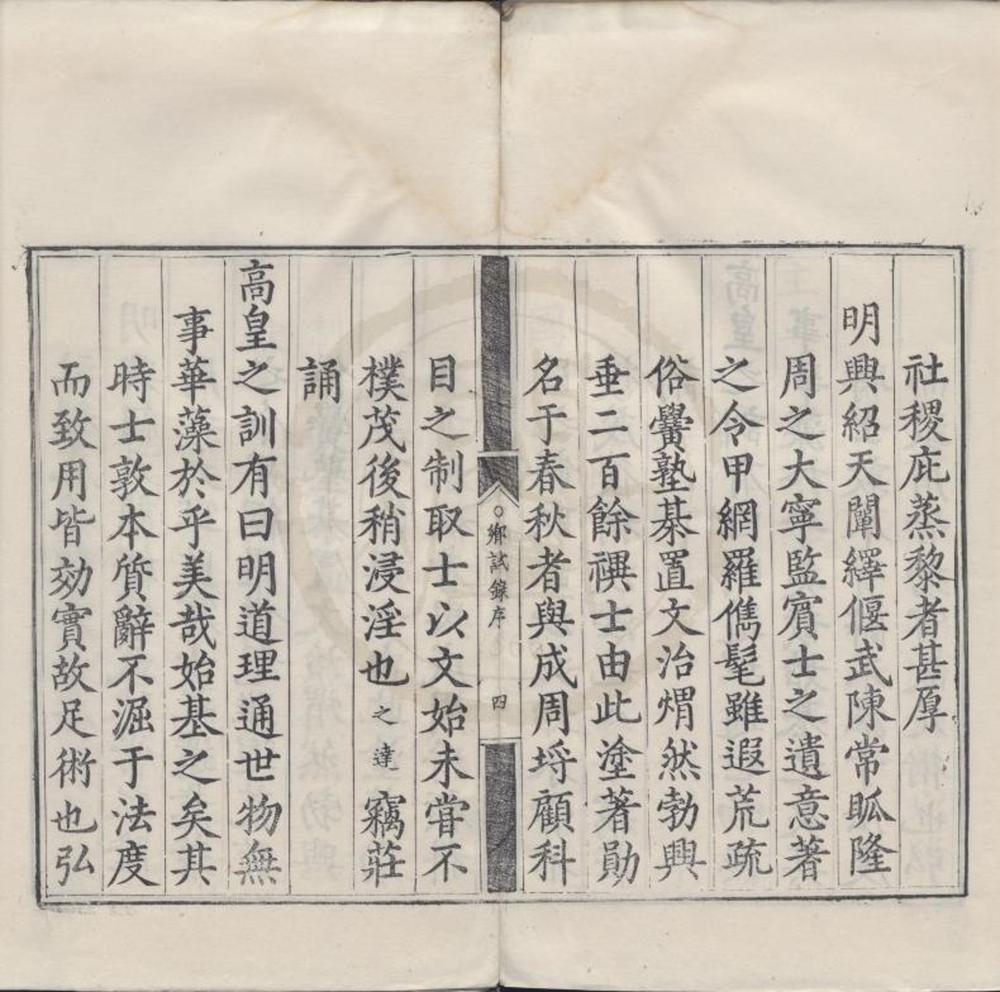 社稷庇蒸黎者甚厚
明興紹天闡繹偃武陳常眡隆
周之大寧監賓士之遺意著
之令甲網羅儁髦雖遐荒疏
俗黌塾棊置文治焆然勃興
垂二百餘禩士由此塗著勛
名于春秋者與成周埒顧科
鄉試錄序 四
目之制取士以文始未嘗不
樸茂後稍浸淫也之達竊莊
誦
高皇之訓有曰明道理通世物無
事華藻於乎美哉始基之矣其
時士敦本質辭不淈于法度
而致用皆効實故足術也弘